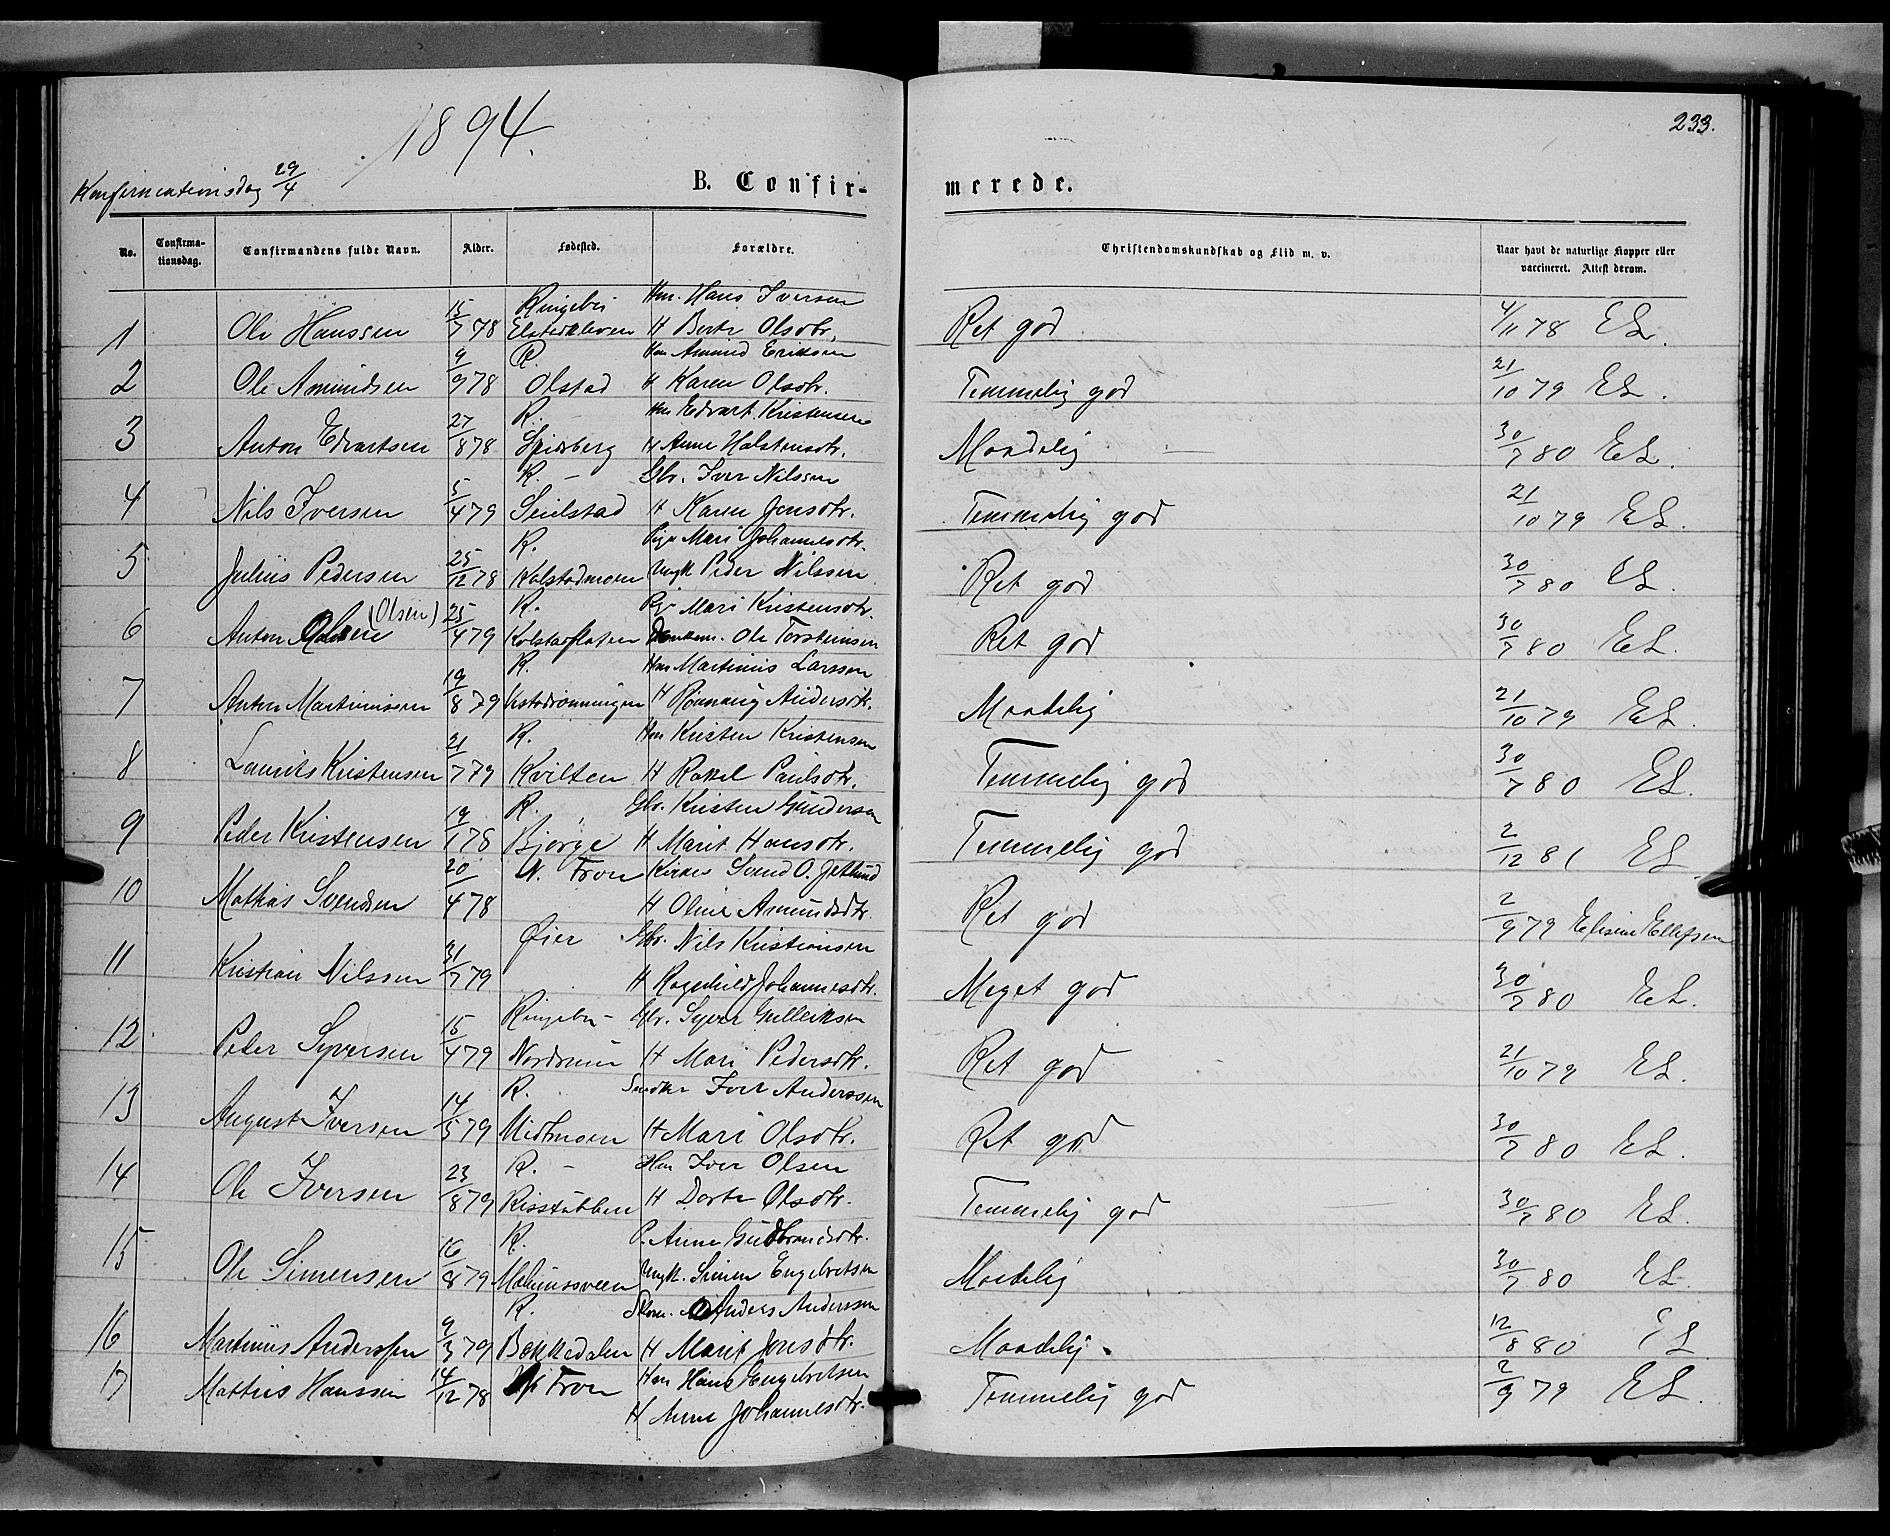 233.
1894.
Konfirmationsdag 29/4
B. Confirmerede.
No. Confirmationsdag. Confirmandens fulde Navn. Alder. Fødested. Forældre. Christendomskundskab og Flid m. v. Naar havt de naturlige Kopper eller vaccineret. Attest derom.
Ringebu Hm. Hans Iversen
1 Ole Hanssen 15/7 78 H Berte Olsdtr. Ret god 4/11 78 EL.
R. Hm Amund Eriksen
2 Ole Amundsen 9/9 78 Olstad H Karen Olsdtr. Temmelig god 21/10 79 EL.
R. Hm Edvart Kristensen
3 Anton Edvartsen 27/8 78 H Anne Halstensdtr. Maadelig 30/7 80 EL.
R. - Gbr. Iver Nilssen
4 Nils Iversen 5/4 79 Seielstad H Karen Jensdtr. Temmelig god 21/10 79 EL.
R. Pige Mari Johannesdtr.
5 Julius Pedersen 25/12 78 Kolstadmoen Ungk Peder Nilssen Ret god 30/7 80 EL.
(Olsen) R. Pige Mari Kristensdtr.
6 Anton 25/4 79 Kolstadflaten Ole Torsteinsen Ret god 30/7 80 EL.
R. Hm Martinus Larssen
7 Anton Martinussen 19/8 79 H Rønnaug Andersdtr. Maadelig 21/10 79 EL.
R. Hm Kristen Kristensen
8 Laurits Kristensen 21/7 79 Kvilten H Rakel Paulsdtr. Temmelig god 30/7 80 EL.
R. Gbr. Kristen Gundersen
9 Peder Kristensen 19/1 78 Bjørge H Marit Hansdtr. Temmelig god 2/12 81 EL
N. Fron Svend O. Jetlund
10 Mathias Svendsen 20/4 78 H Oline Amundsdtr. Ret god 2/9 79 Elisine Ellefsen
Øier Gbr. Nils Kristiansen
11 Kristian Nilssen 31/7 79 H Ragnhild Johannesdtr. Meget god 30/7 80 EL.
Ringebu - Gbr. Syver Gulleiksen
12 Peder Syversen 15/4 79 Nordrum H Mari Pedersdtr. Ret god 21/10 79 EL.
R. Iver Anderssen
13 August Iversen 14/5 79 Midtmoen H Mari Olsdtr. Ret god 30/7 80 EL.
R. - Hm Iver Olsen
14 Ole Iversen 23/8 79 Risstubben H Dorte Olsdtr. Temmelig god 30/7 80 EL.
R. P. Anne Gudbrandsdtr.
15 Ole Simensen 16/8 79 Ungk. Simen Engebretsen Maadelig 30/7 80 EL
R. Skom. Anders Anderssen
16 Martinus Anderssen 9/3 79 Bakkedalen H Marit Jonsdtr. Maadelig. 12/8 80 EL
17 Mathis Hanssen 14/12 78 Fron Hm Hans Engebretsen Temmelig god 2/9 79 EL.
H Anne Johannesdtr.